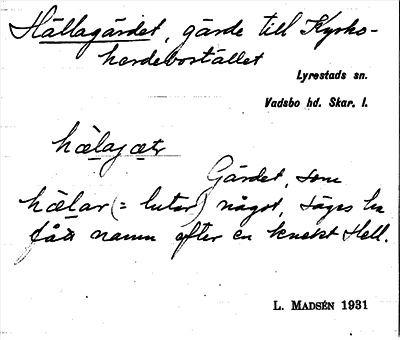 Hällagärdet, gärde till Kyrko-
herdebostället
Lyrestads sn.
Vadsbo hd. Skar. l.
hælajæṭ
Gärdet, som
hælar (= lutar) något, säges ha
fått namn efter en knekt Hell.
L. MADSÉN 1931